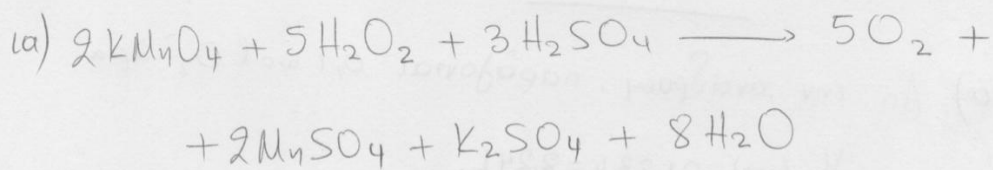 1a) 2KMnO₄ + 5H₂O₂ + 3H₂SO₄ ⟶ 5O₂ +
+ 2MnSO₄ + K₂SO₄ + 8H₂O